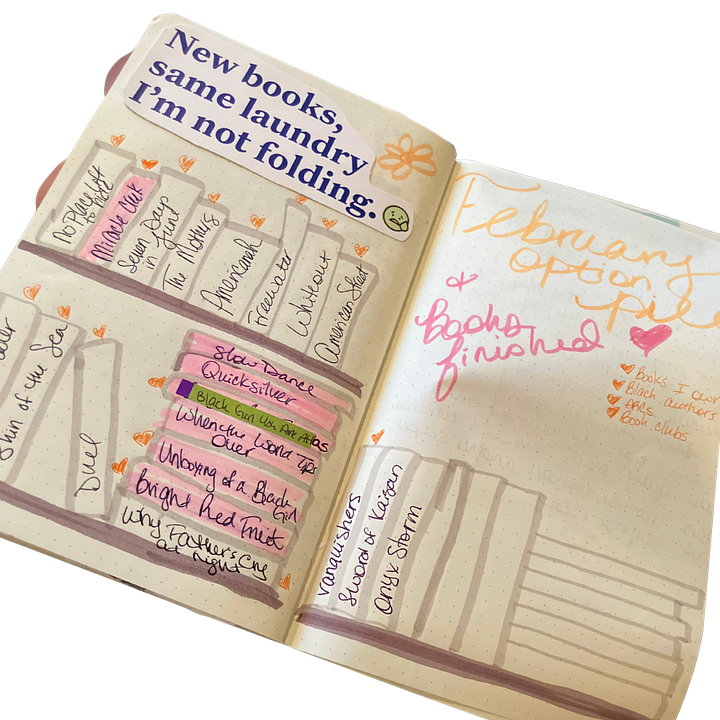 New books,
same laundry
I'm not folding.
No Place Left
to hide
Miracle Creek
Seven Days
in June
The Mothers
Americanah
Freewater
Whiteout
American Street
Skin of the Sea
Duel
Slow Dance
Quicksilver
Black Girl You Are Atlas
When the World Tips
Over
Unboxing of a Black
Girl
Bright Red Fruit
Why Fathers Cry
at Night
February
option
pile
&
Books
finished
Books I own
Black authors
ARCs
Book clubs
Vanquishers
Sword of Kaigan
Onyx Storm